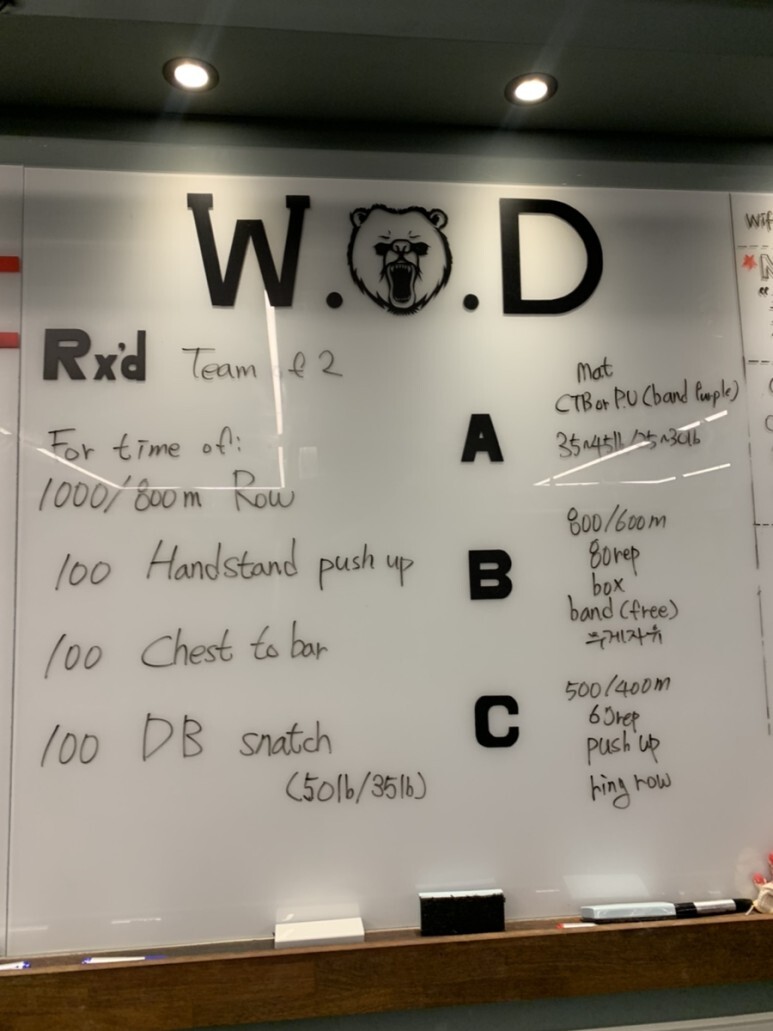 W.O.D
Rx'd Team of 2
For time of:
1000/800m Row
100 Handstand push up
100 Chest to bar
100 DB snatch
(50lb/35lb)
A
Mat
CTB or P.U (band Purple)
35~45lb/25~30lb
B
800/600m
80rep
box
band (free)
무게자유
C
500/400m
65rep
push up
ring row
Wif